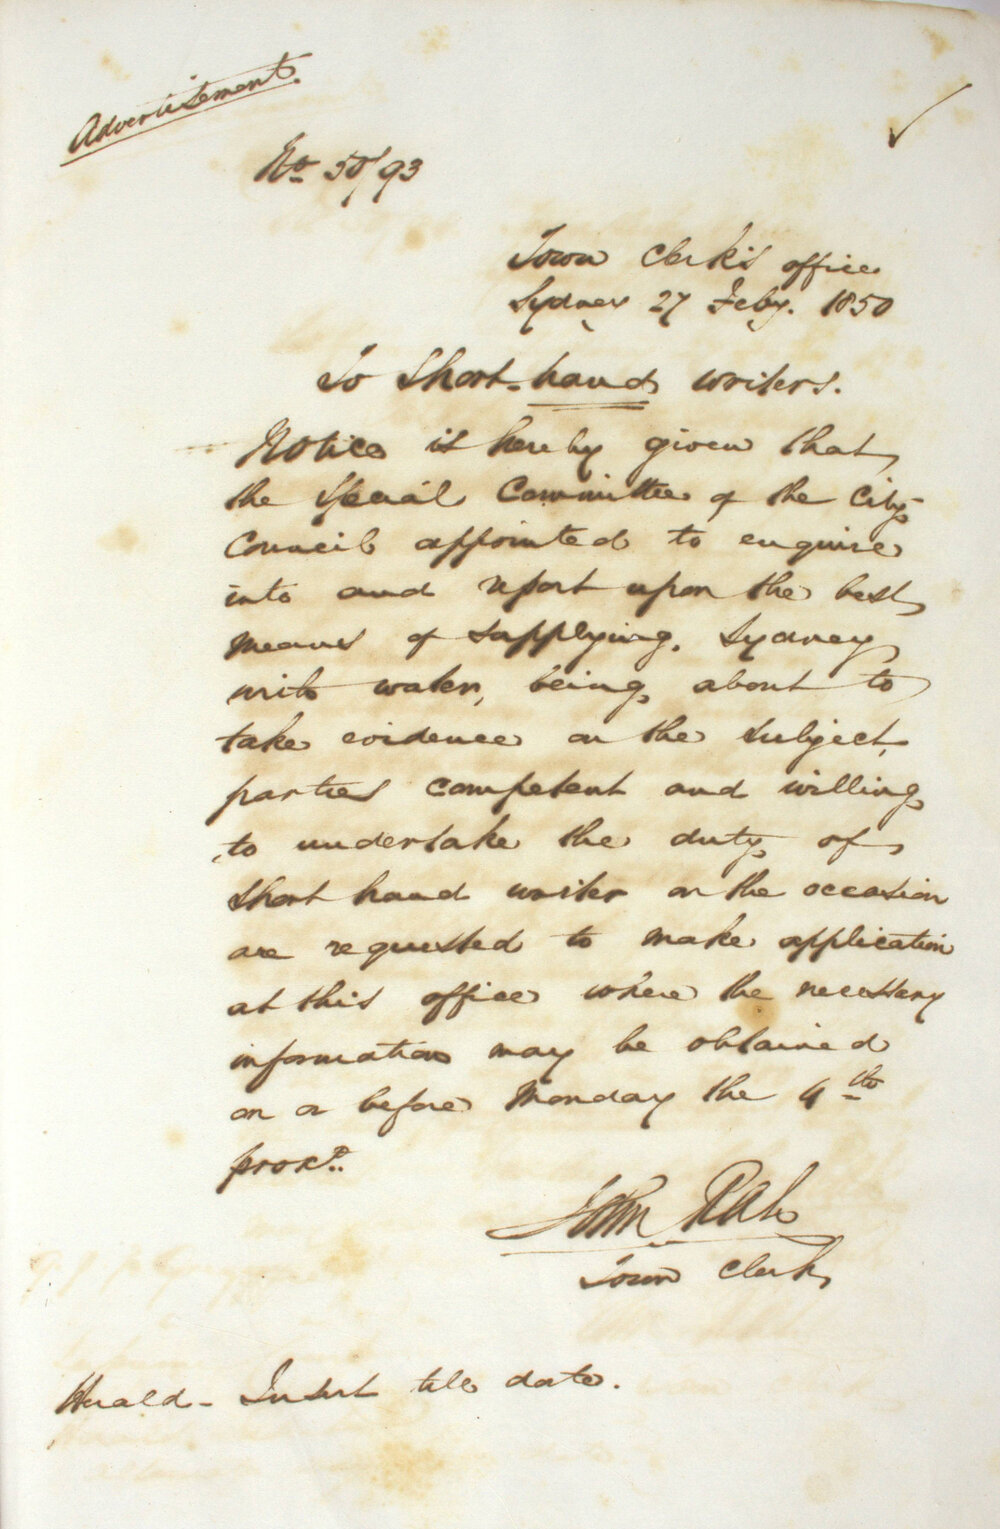 Advertisement.
No 50/93
Town Clerk's office
Sydney 27 Feby. 1850
To Short-hand writers.
Notice is hereby given that
the Special Committee of the City
Council appointed to enquire
into and report upon the best
means of supplying Sydney
with water, being about to
take evidence on the subject,
parties competent and willing
to undertake the duty of
short hand writer on the occasion
are requested to make application
at this office where the necessary
information may be obtained
on or before Monday the 4th
proxo.
John Rae
Town Clerk
Herald - Insert till date.